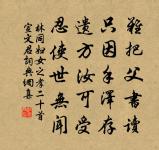 難把父書讀
只因手澤存
遺方汝可受
忍使世無聞
林同婦女之孝二十首
宣文君詞典網喜